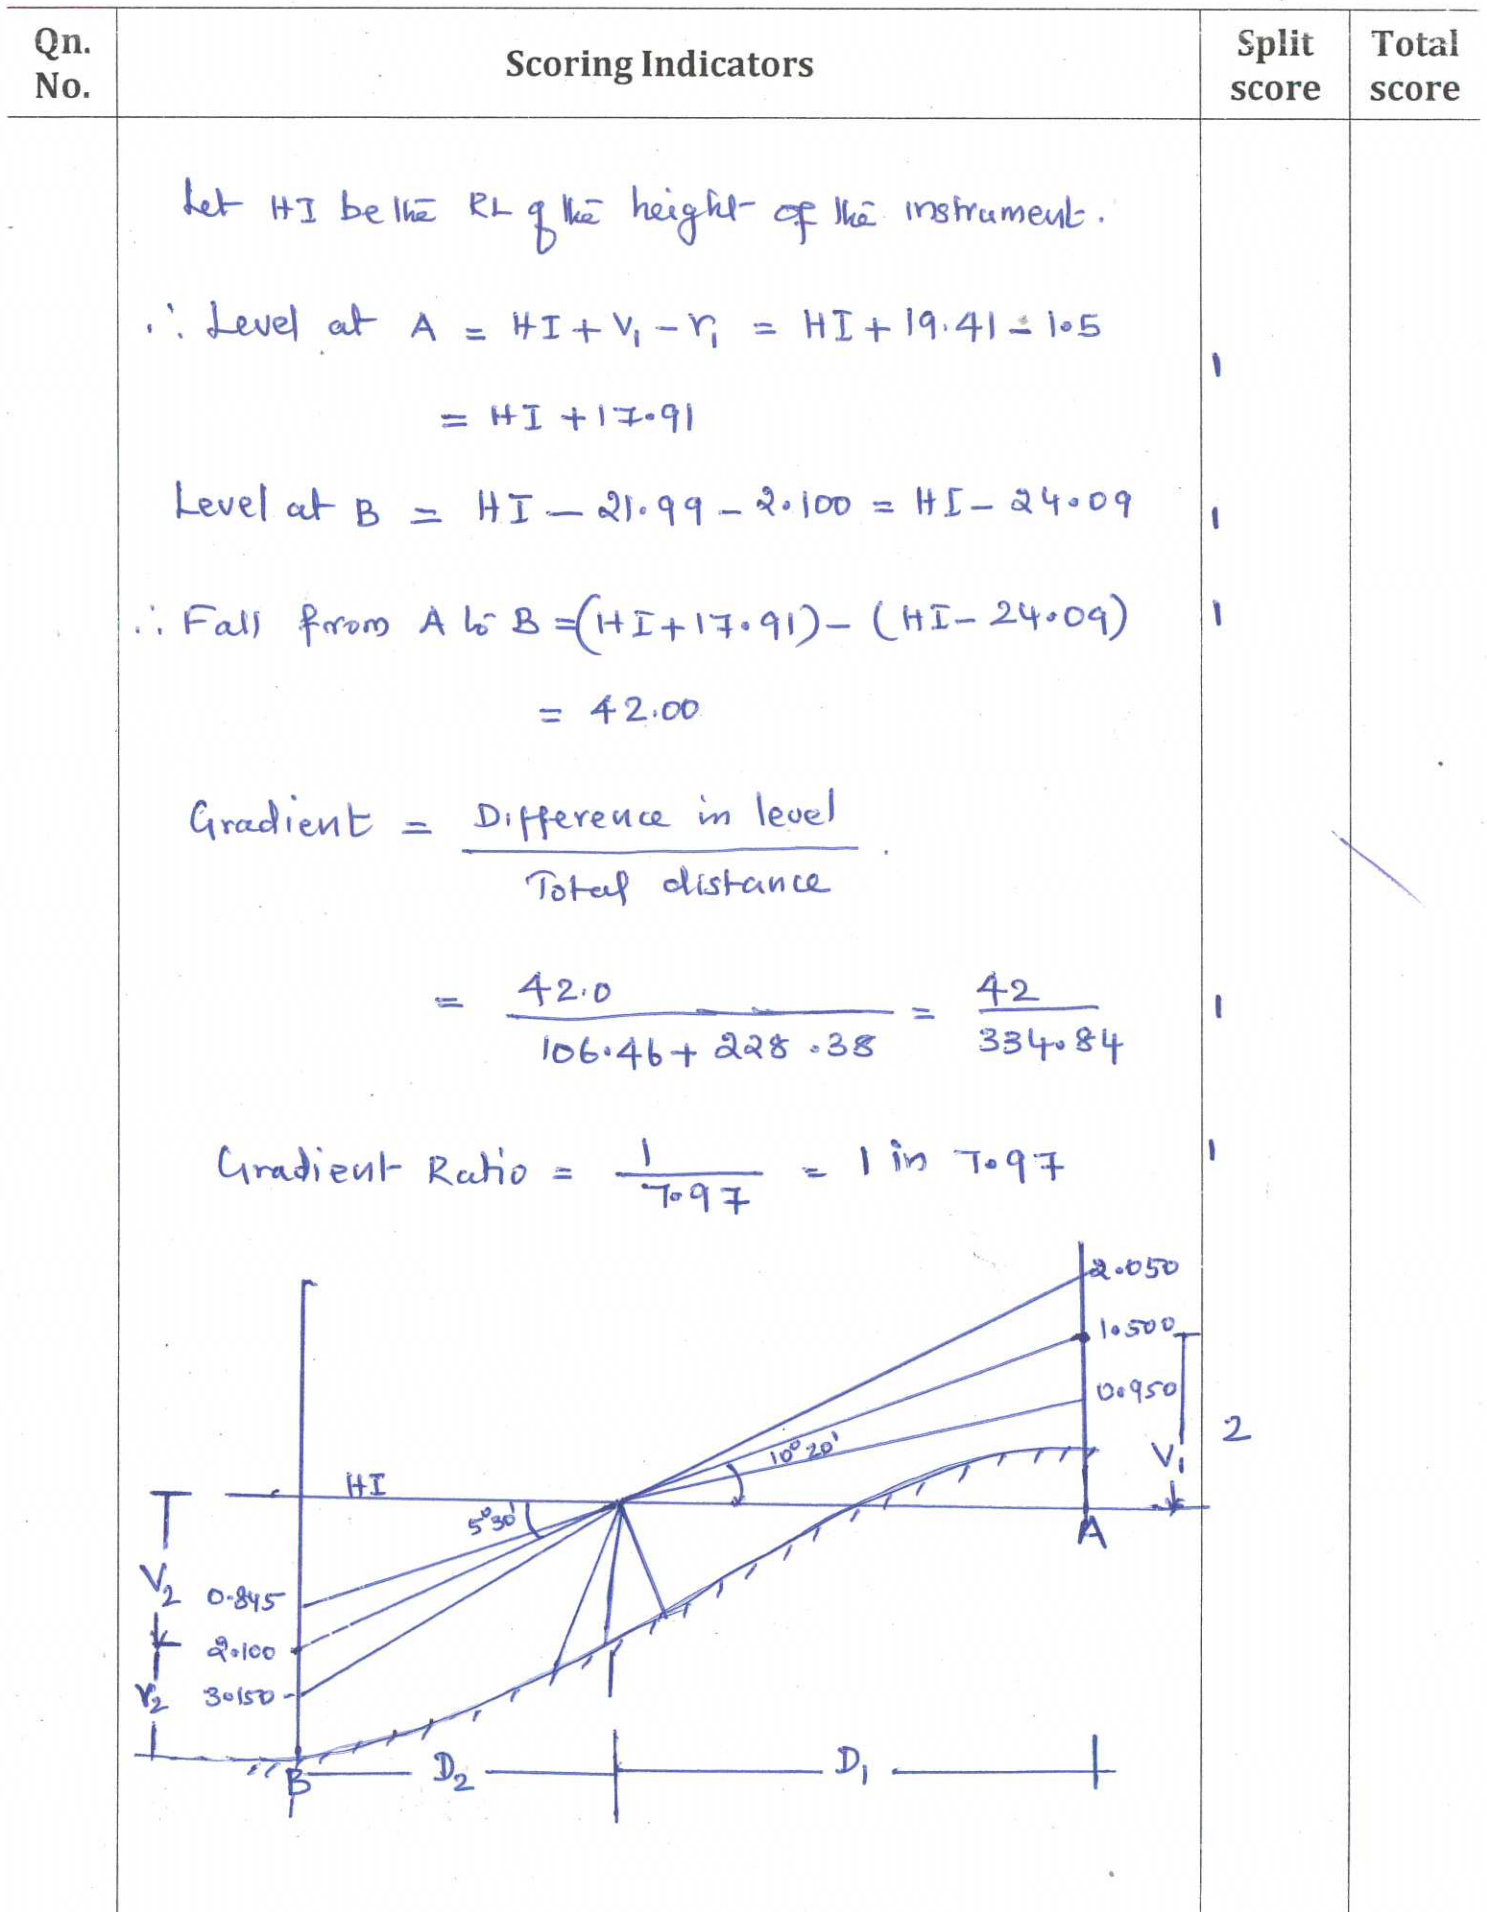 Qn. No.
Scoring Indicators
Split score
Total score
Let HI be the RL of the height of the instrument.
∴ Level at A = HI + V₁ - r₁ = HI + 19.41 - 1.5
1
= HI + 17.91
Level at B = HI - 21.99 - 2.100 = HI - 24.09
1
∴ Fall from A to B = (HI + 17.91) - (HI - 24.09)
1
= 42.00
Gradient = Difference in level / Total distance
= 42.0 / 106.46 + 228.38 = 42 / 334.84
1
Gradient Ratio = 1 / 7.97 = 1 in 7.97
1
2.050
1.500
0.950
10° 20'
V₁
2
HI
5°30'
A
V₂
0.845
2.100
r₂
3.150
B
D₂
D₁